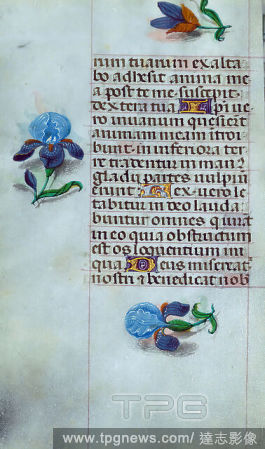 num tuarum exalta
bo adhesit anima me
a post te me suscepit
dextera tua Ipi ve
ro in vanum quesierūt
animam meam introi
bunt in inferiora ter
re tradentur in manꝰ
gladij partes vulpiū
erunt Rex vero le
tabitur in deo lauda
buntur omnes qui iurāt
in eo quia obstructum
est os loquentium ini
qua Deus misereat
nostri et benedicat nob
TPG
www.tpgnews.com / 達志影像